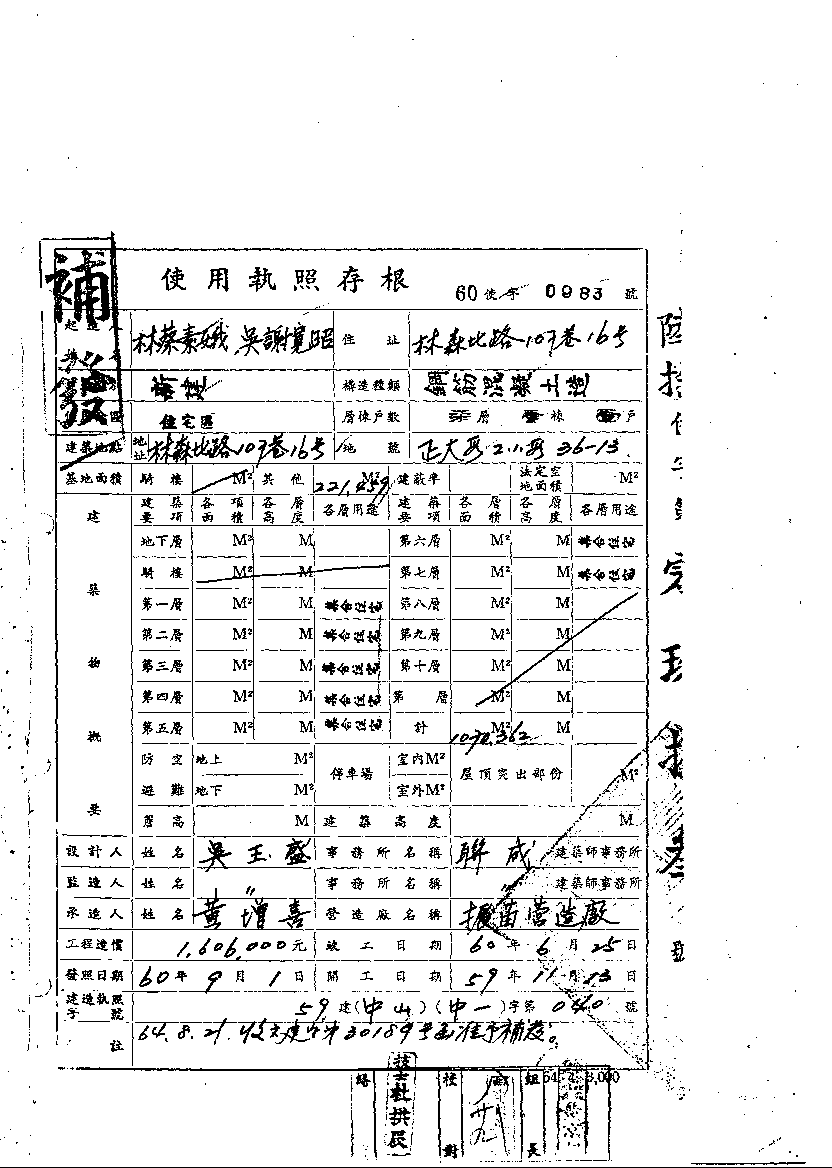 補發
使用執照存根 60使字 0983 號
起造人 林蔡素娥 吳謝寬昭 住址 林森北路107巷16号
新建 構造種類 鋼筋混凝土造
住宅區 層棟戶數 層 棟 戶
建築地點 地址 林森北路107巷16号 地號 正大段二小段36-13
基地面積 騎樓 M² 其他 221.459 M² 建蔽率 法定空地面積 M²
建築物概要
建築要項 各項面積 各層高度 各層用途 建築要項 各層面積 各層高度 各層用途
地下層 M² M 第六層 M² M 集合住宅
騎樓 M² M 第七層 M² M 集合住宅
第一層 M² M 集合住宅 第八層 M² M
第二層 M² M 集合住宅 第九層 M² M
第三層 M² M 集合住宅 第十層 M² M
第四層 M² M 集合住宅 第 層 M² M
第五層 M² M 集合住宅 計 1070.362 M² M
防空 地上 M² 停車場 室內M² 屋頂突出部份 M²
避難 地下 M² 室外M²
簷高 M 建築高度 M
設計人 姓名 吳玉盛 事務所名稱 聯成 建築師事務所
監造人 姓名 〃 事務所名稱 〃 建築師事務所
承造人 姓名 黃增喜 營造廠名稱 振苗營造廠
工程造價 1,606,000元 竣工日期 60年6月25日
發照日期 60年9月1日 開工日期 59年11月13日
建造執照字號 59建(中山)(中一)字第040號
註 64.8.21.收文建字第30189号函准予補發。
技士杜拱辰 校對 組長